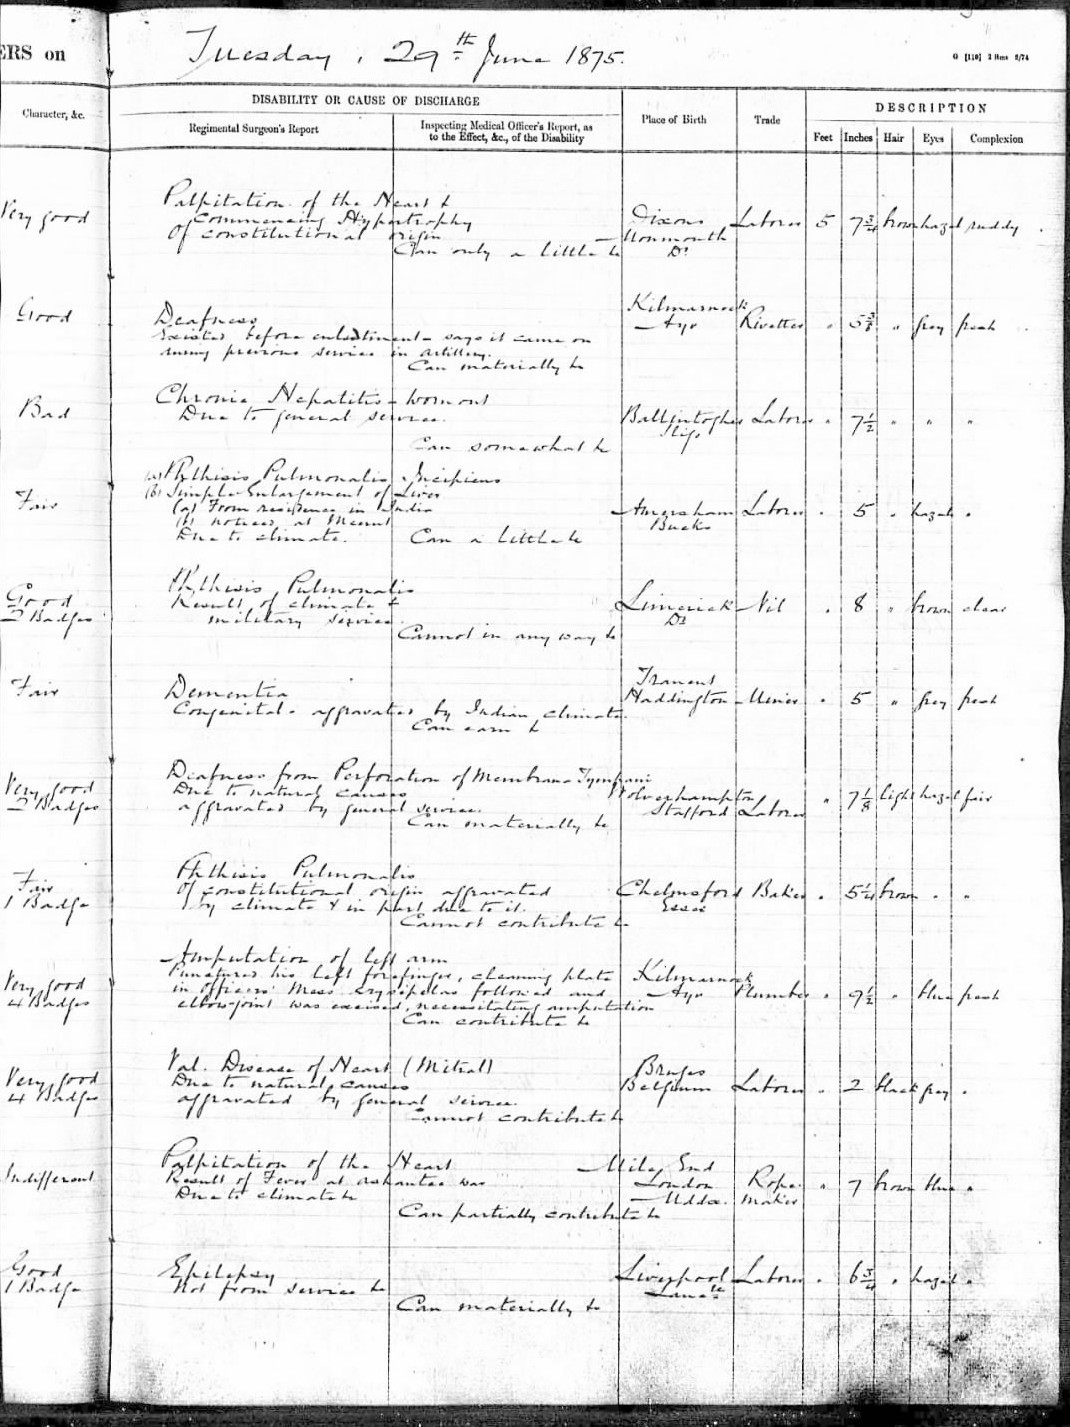 ERS on
Tuesday, 29th June 1875.
G [118] 2 Hms 2/74
Character, &c.
DISABILITY OR CAUSE OF DISCHARGE
Regimental Surgeon's Report
Inspecting Medical Officer's Report, as
to the Effect, &c., of the Disability
Place of Birth
Trade
DESCRIPTION
Feet Inches Hair Eyes Complexion
Very good
Palpitation of the Heart &
Commencing Hypertrophy
Of constitutional origin
Can only a little &c
Dixons
Monmouth
Do
Laborer 5 7 3/4 brown hazel ruddy
Good
Deafness
Existed before enlistment - says it came on
during previous service in Artillery.
Can materially &c
Kilmarnock
Ayr
Rivetter " 5 3/8 " grey fresh
Bad
Chronic Hepatitis -
Due to general service.
Can somewhat &c
Ballintogher
Sligo
Laborer " 7 1/2 " " "
Fair
(a) Phthisis Pulmonalis Incipiens
(b) Simple Enlargement of Liver
(a) From residence in India
(b) noticed at Meerut
Due to climate.
Can a little &c
Amersham
Bucks
Laborer " 5 " hazel "
Good
2 Badges
Phthisis Pulmonalis
Result of climate &
military service
Cannot in any way &c
Limerick
Do
Nil " 8 " brown clear
Fair
Dementia
Congenital - aggravated by Indian climate.
Can earn &c
Tranent
Haddington
Miner " 5 " grey fresh
Very good
2 Badges
Deafness from Perforation of Membrana Tympani
Due to natural causes
aggravated by general service.
Can materially &c
Wolverhampton
Stafford
Laborer " 7 1/8 light hazel fair
Fair
1 Badge
Phthisis Pulmonalis
Of constitutional origin aggravated
by climate & in part due to it.
Cannot contribute &c
Chelmsford
Essex
Baker " 5 1/4 brown " "
Very good
4 Badges
Amputation of left arm
Punctured his left forefinger, cleaning plate
in Officers' Mess Erysipelas followed and
elbow-joint was excised, necessitating amputation
Can contribute &c
Kilmarnock
Ayr
Plumber " 9 1/2 " blue fresh
Very good
4 Badges
Val. Disease of Heart (Mitral)
Due to natural causes
aggravated by general service.
Cannot contribute &c
Bruges
Belgium
Laborer " 2 black grey "
Indifferent
Palpitation of the Heart
Result of Fever at Ashantee war
Due to climate &c
Can partially contribute &c
Mile End
London
Middx.
Rope
maker
" 7 brown blue "
Good
1 Badge
Epilepsy
Not from service &c
Can materially &c
Liverpool
Lancre
Laborer " 6 3/4 " hazel "